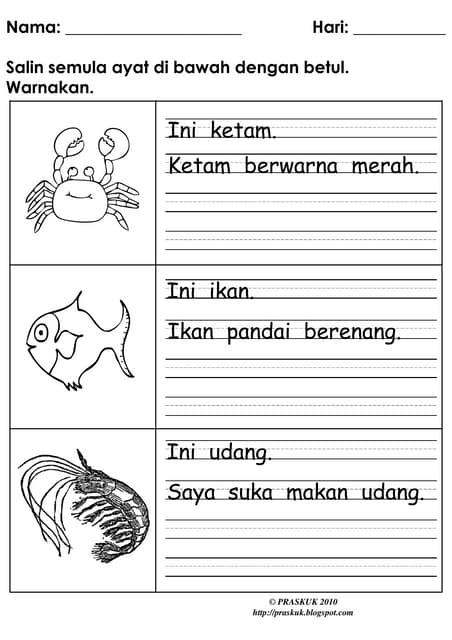 Nama: ____________________ Hari: ___________
Salin semula ayat di bawah dengan betul.
Warnakan.
Ini ketam.
Ketam berwarna merah.
Ini ikan.
Ikan pandai berenang.
Ini udang.
Saya suka makan udang.
© PRASKUK 2010
http://praskuk.blogspot.com